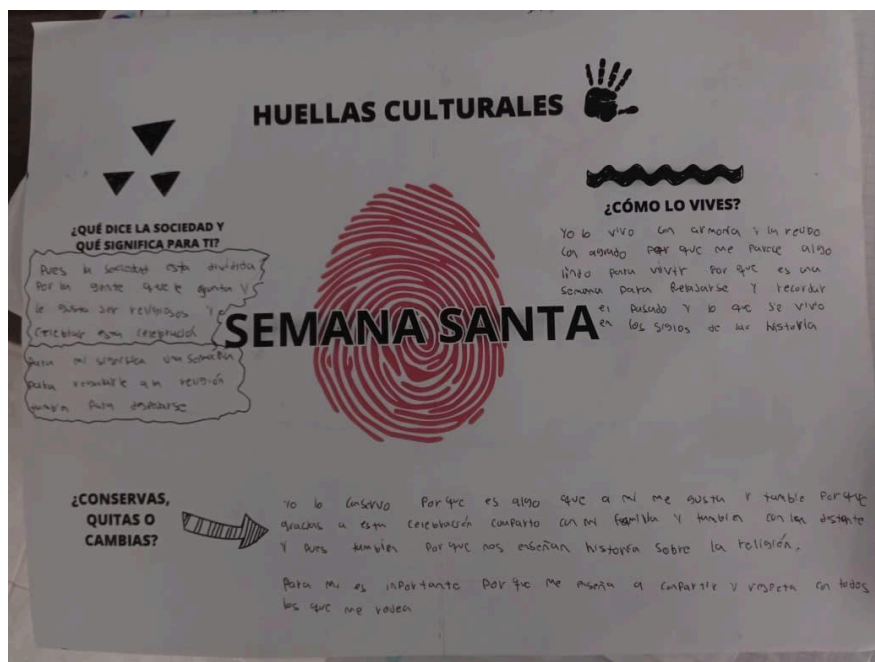 HUELLAS CULTURALES
¿QUÉ DICE LA SOCIEDAD Y
QUÉ SIGNIFICA PARA TI?
Pues la sociedad esta dividida
Por la gente que le gusta y
le gusta ser religiosos y
Celebrar esta celebración
Para mi significa una semana
para la religión
para despedarse
¿CÓMO LO VIVES?
Yo lo vivo con armonía y la recibo
con agrado por que me parece algo
lindo para vivir Por que es una
semana para Relajarse y recordar
el Pasado y lo que se vivio
en los siglos de la historía
SEMANA SANTA
¿CONSERVAS,
QUITAS O
CAMBIAS?
Yo lo conservo Por que es algo que a mí me gusta y tambie Por que
gracias a esta celebración comparto con mi familia y tambien con los distante
Y Pues tambien Por que nos enseñan historia sobre la religión.
Para mi es inportante Por que me enseña a conpartir y respeta con todos
los que me rodea